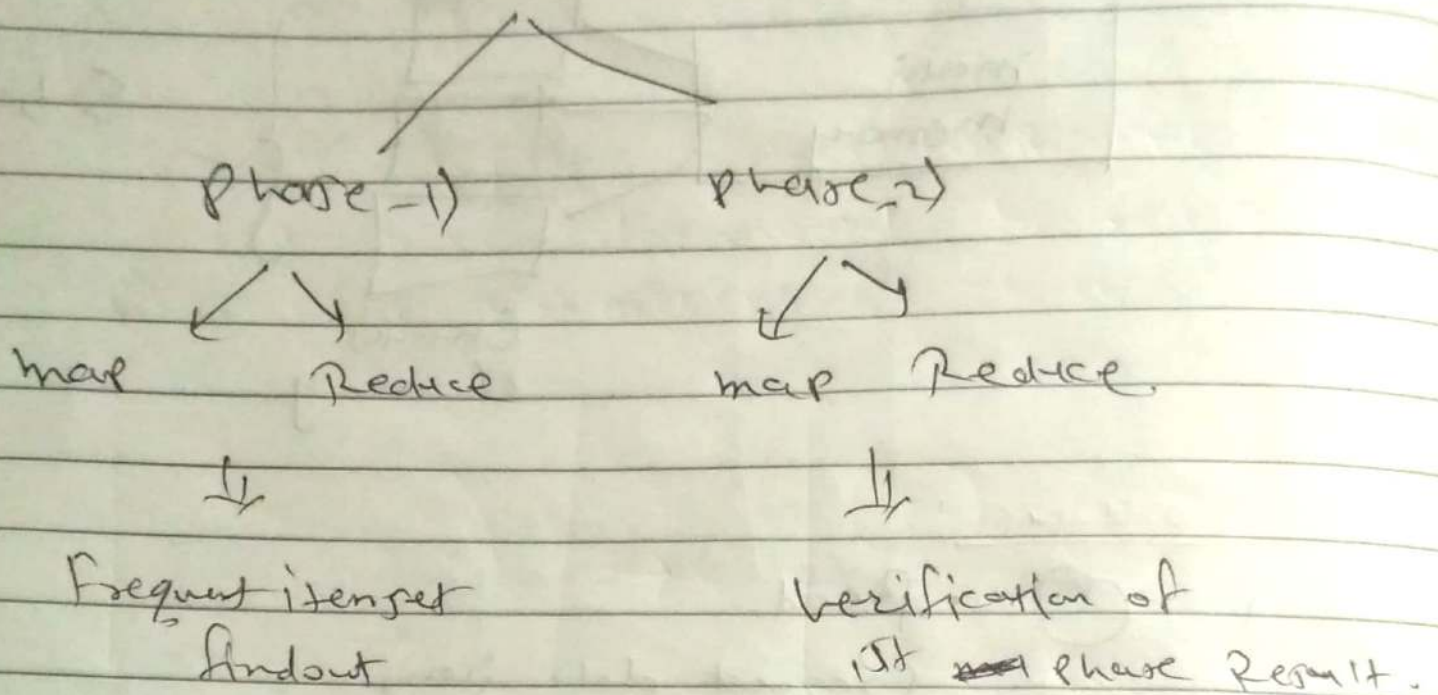 Phase-1) Phase-2)
map Reduce map Reduce.
Frequent itemset verification of
findout 1st phase Result.